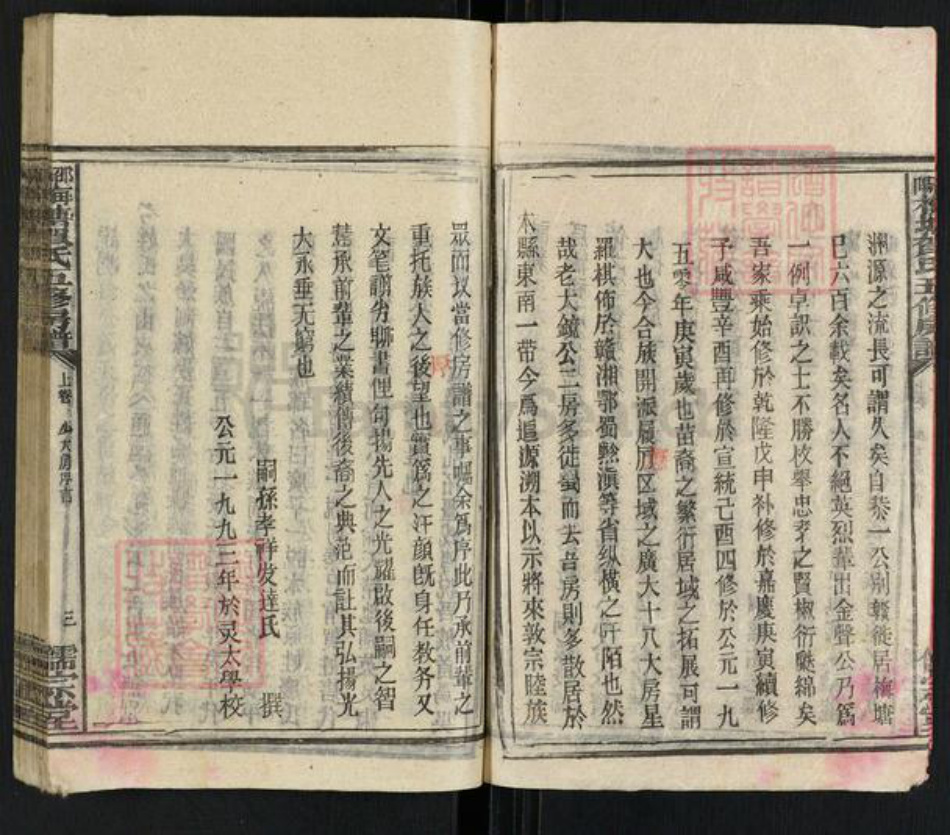 淵源之流長可謂久矣自恭一公別贛徙居梅塘
已六百余載矣名人不絕英烈輩出金聲公乃為
一例卓識之士不勝枚舉忠孝之賢椒衍縣綿矣
吾家乘始修於乾隆戊申补修於嘉慶庚寅續修
于咸豐辛酉再修於宣統己酉四修於公元一九
五零年庚寅歲也苗裔之繁衍居域之拓展可謂
大也今合族開派展图区域之廣大十八大房星
羅棋佈於贛湘鄂蜀黔滇等省纵橫之阡陌也然
哉老大鏡公二房多徒蜀而去吾房則多散居於
本縣東南一带今爲追源溯本以示將來敦宗睦族
眾而议當修房譜之事嘱余爲序此乃承前輩之
重托族人之後望也實爲之汗顏既身任教务又
文笔謭劣聊書俚句揚先人之光耀啟後嗣之智
慧承前輩之業績傳後裔之典范而让其弘揚光
大永垂无窮也
嗣孫孝祥发達氏 撰
公元一九九二年於灵太學校
五修房譜
上卷
三
儒宗堂